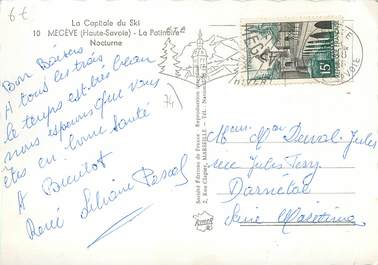 6€
La Capitale du Ski
10 MEGÈVE (Haute-Savoie) - La Patinoire
Nocturne
Bon Baisers
A tous les trois
le temps est très beau
nous espérons que vous
êtes en bonne santé
A Bientôt
René Liliane Pascal
74
MEGÈVE
HIVER
15F
Société Éditions de France
2, Rue Clapier, MARSEILLE
Reproduction
Mr Mme Duval Jules
rue Jules Ferry
Darnétal
Seine Maritime